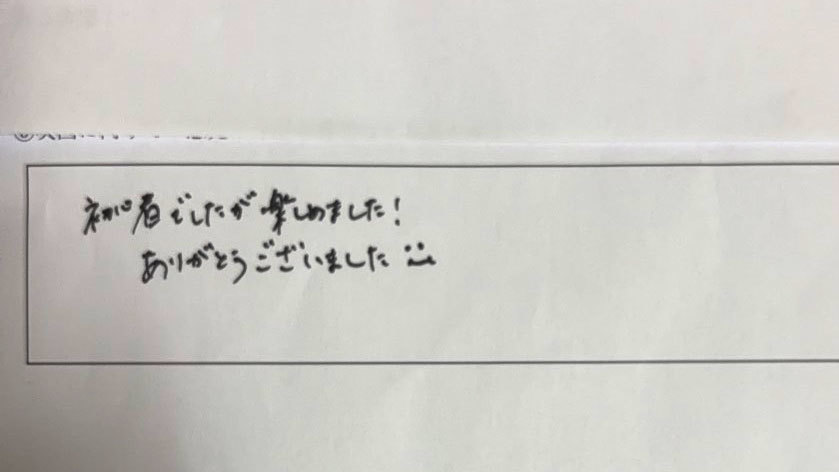 初心者でしたが楽しめました!
ありがとうございました